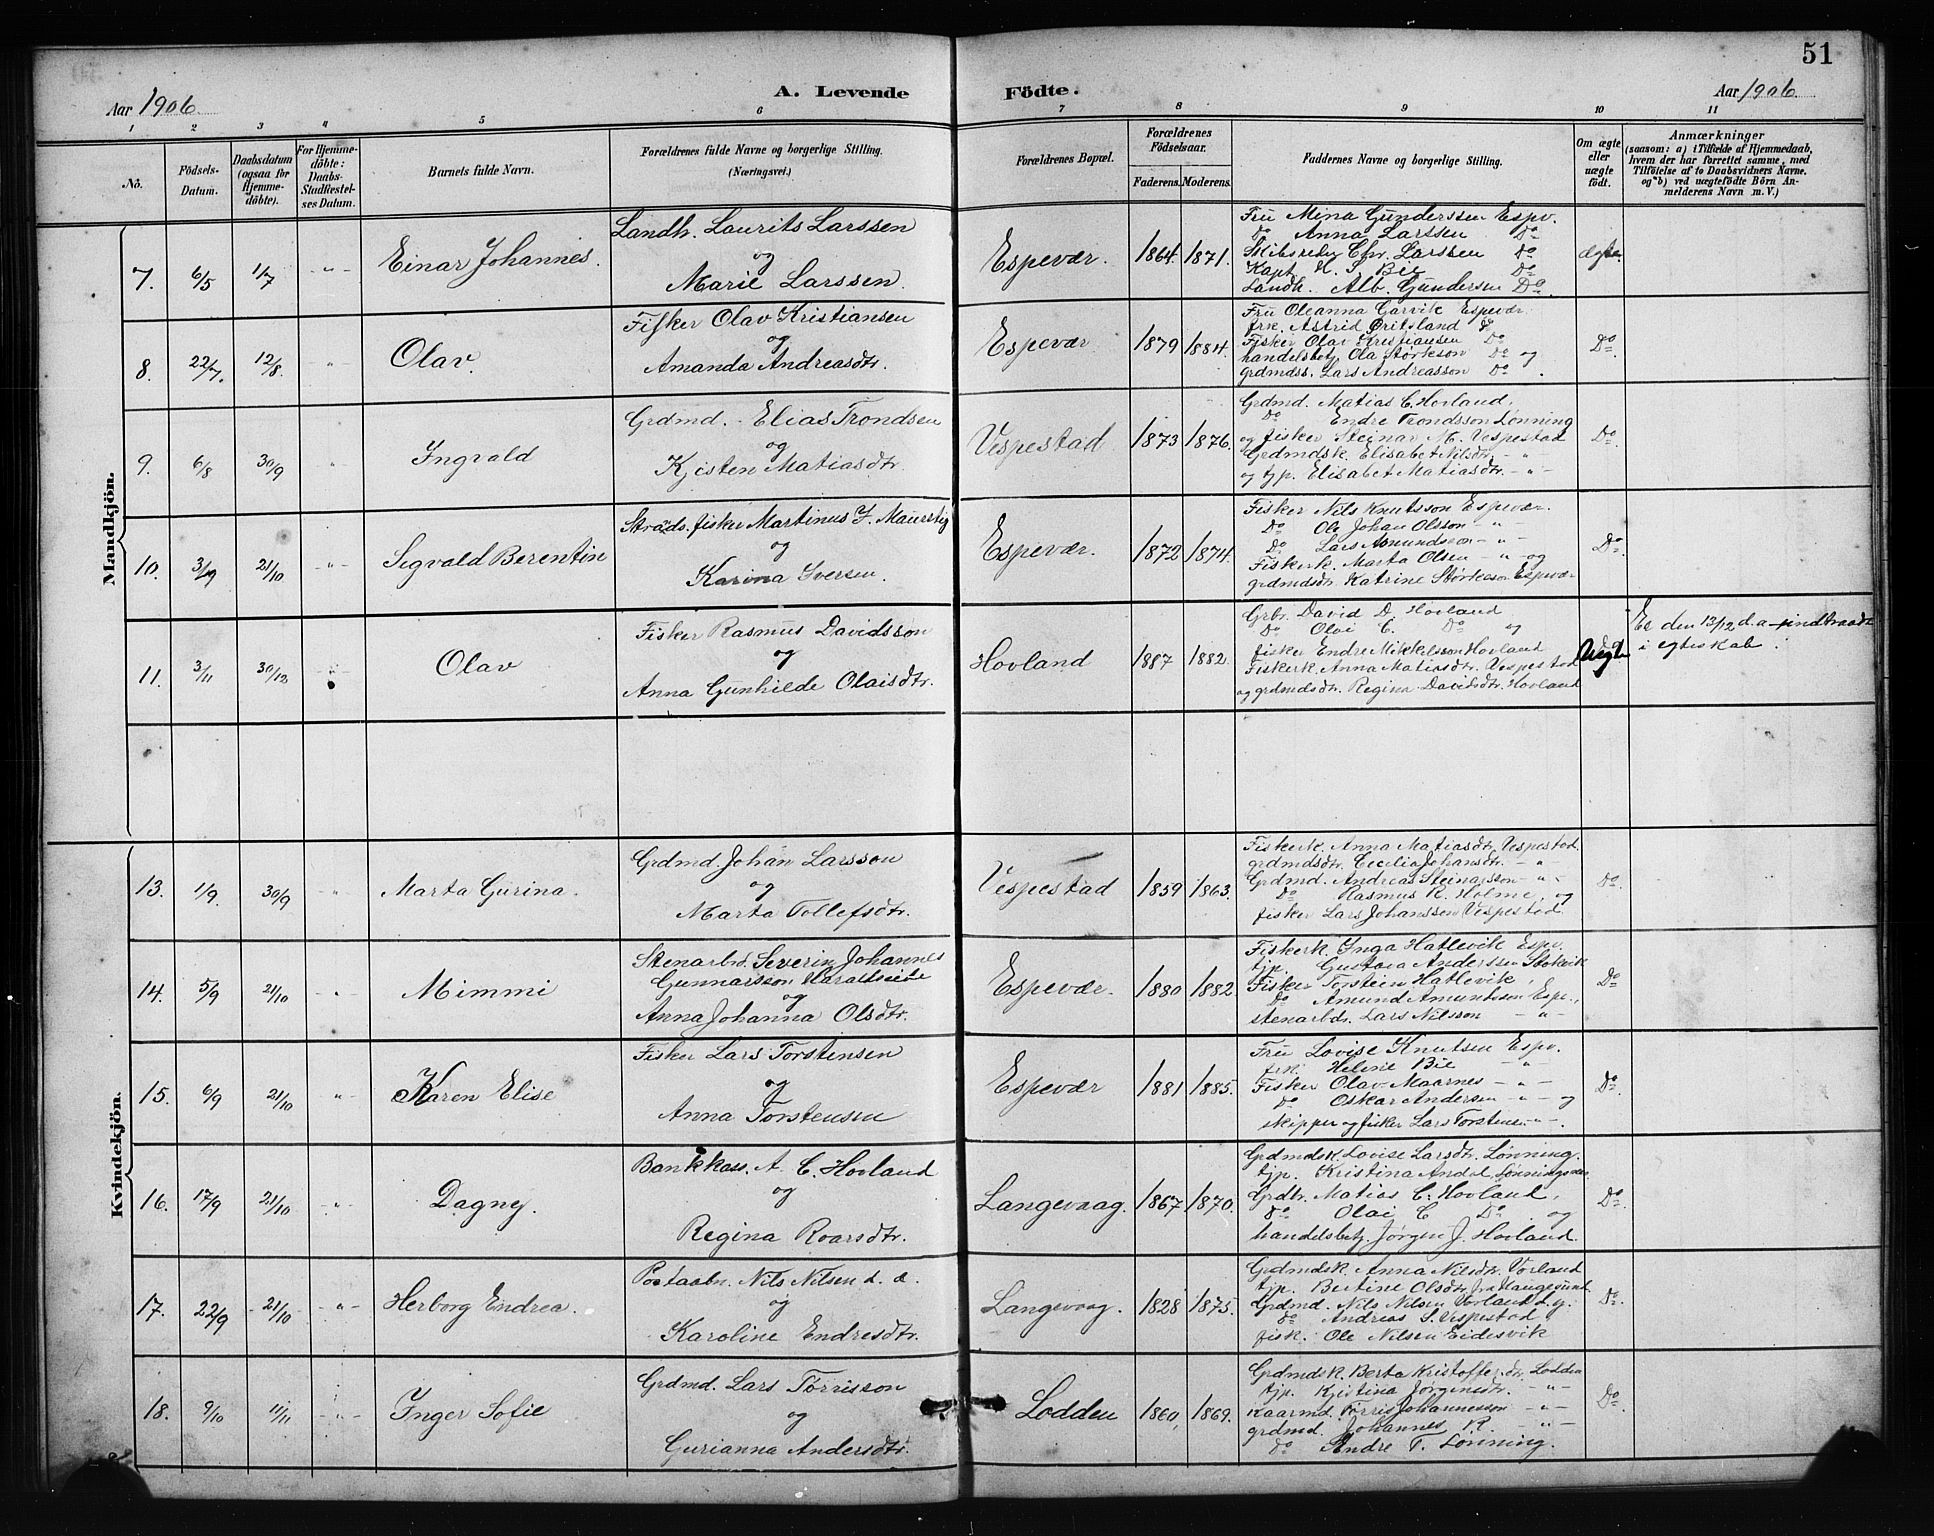 51
Aar 1906.
A. Levende
Födte.
Aar 1906.
1 2 3 4 5 6 7 8 9 10 11
No.
Födsels-Datum.
Daabsdatum (ogsaa for Hjemme-döbte).
For Hjemme-döbte: Daabs-Stadfæstel-ses Datum.
Barnets fulde Navn.
Forældrenes fulde Navne og borgerlige Stilling.
(Næringsvei.)
Forældrenes Bopæl.
Forældrenes Födselsaar.
Faderens. Moderens.
Faddernes Navne og borgerlige Stilling.
Om ægte eller uægte födt.
Anmærkninger
(saasom: a) i Tilfælde af Hjemmedaab, hvem der har forrettet samme, med Tilföielse af to Daabsvidners Navne. og b) ved uægtefödte Börn An-melderens Navn m. V.)
Mandkjön.
7. 6/5 1/7 -"- Einar Johannes.
Landh. Laurits Larssen
og
Marie Larssen.
Espevær. 1864. 1871.
Fru Mina Gunderssen Espv.
Do Anna Larssen Do
Skibsreder Chr. Larssen Do
Kapt. H. S. Bee Do
Landh. Alb. Gundersen Do.
ægte.
8. 22/7. 12/8. -"- Olav.
Fisker Olav Kristiansen
og
Amanda Andreasdtr.
Espevær 1879 1884.
Fru Oleanna Garvik Espevær.
frk. Astrid Do
Fisker Olav Kristiansen Do
handelsbetj. Ola Størkson Do og
grdmdss. Lars Andreasson Do.
Do.
9. 6/8 30/9 " Ingvald
Grdmd. Elias Trondsen
og
Kjisten Matiasdtr.
Vespestad 1873 1876.
Grdmd. Matias C. Hovland,
Do Endre Trondsson Lønning
og fisker Steinar M. Vespestad
Grdmdsk. Elisabet Nilsdtr. -"-
og tjp. Elisabet Matiasdtr. -"-
Do.
10. 3/9 21/10 -"- Sigvald Berentin
Strøds. fisker Martinus J. Maurstig
og
Karina Iversen.
Espevær. 1872 1874.
Fisker Nils Knutsson Espevær.
Do Ole Johan Olsson -"-
Do Lars Asmundsson -"-
Fiskerk. Marta Olsen -"- og
grdmdsdtr. Katrine Størkeson Espevær
Do.
11. 3/11 30/12 Olav
Fisker Rasmus Davidsson
og
Anna Gunhilde Olaisdtr.
Hovland 1887 1882.
Grbr. David D. Hovland
Do Olai C. Do og
fisker Endre Mikkelsson Hovland
Fiskerk. Anna Matiasdtr. Vespestad
og grdmdsdtr. Regina Davidsdtr. Hovland
Uegte
Er den 13/12 d.a. indtraadt
i egteskab.
Kvindekjön.
13. 1/9. 30/9 -"- Marta Gurina.
Grdmd. Johan Larsson
og
Marta Tollefsdtr.
Vespestad 1859 1863.
Fiskerk. Anna Matiasdtr. Vespestad
grdmdsdtr. Cecilia Johansdtr. -"-
Grdmd. Andreas Steinarsson -"-
Do Rasmus K. Holme, og
fisker Lars Johanssen Vespestad.
Do.
14. 5/9 21/10 " Mimmi
Stenarbd. Severin Johannes
Gunnarsson Haraldseide
og
Anna Johanna Olsdtr.
Espevær. 1880 1882
Fiskerk. Inga Hatlevik Espv.
tjp. Gustava Anderssen Stokvik
Fisker Torstein Hatlevik,
Do Amund Amundsson Espv.,
stenarbdr. Lars Nilsson -"-
Do
15. 6/9 21/10 -"- Karen Elise
Fisker Lars Torstensen
og
Anna Torstensen
Espevær 1881 1885.
Fru Lovise Knutsen Espv.
frk. Heline Bie "
Fisker Olav Maarnes -"-
Do Oskar Andersen -"- og
skipper og fisker Lars Torstensen -"-.
Do.
16. 17/9 21/10 -"- Dagny.
Bankkass. A. C. Hovland
og
Regina Roarsdtr.
Langevaag. 1867 1870.
Grdmdsk. Lovise Larsdtr. Lønning.
tjp. Kristina
Grdbr. Matias C. Hovland,
do Olai C Do og
handelsbetj. Jørgen J. Hovland.
Do.
17. 22/9 21/10 -"- Herborg Endrea.
Postaabn. Nils Nilsen d. æ.
og
Karoline Endresdtr.
Langevaag. 1828 1875.
Grdmdsk. Anna Nilsdtr. Vorland
tjp. Bertine Olsdtr. fra Haugesund
Grdmd. Nils Nilsen Vorland d. y.
do Andreas S. Vespestad
fisk. Ole Nilsen Eidesvik
Do.
18. 9/10 11/11 -"- Inger Sofie
Grdmd. Lars Tørrisson
og
Gurianna Andersdtr.
Lodden 1860, 1869.
Grdmdsk. Berta Kristoffersdtr. Lodden
tjp. Kjistina Jørgensdtr. -"-
Kaarmd. Tørris Johannesson -"-
grdmd. Johannes K. -"-
Do Andre T. Lønning.
Do.